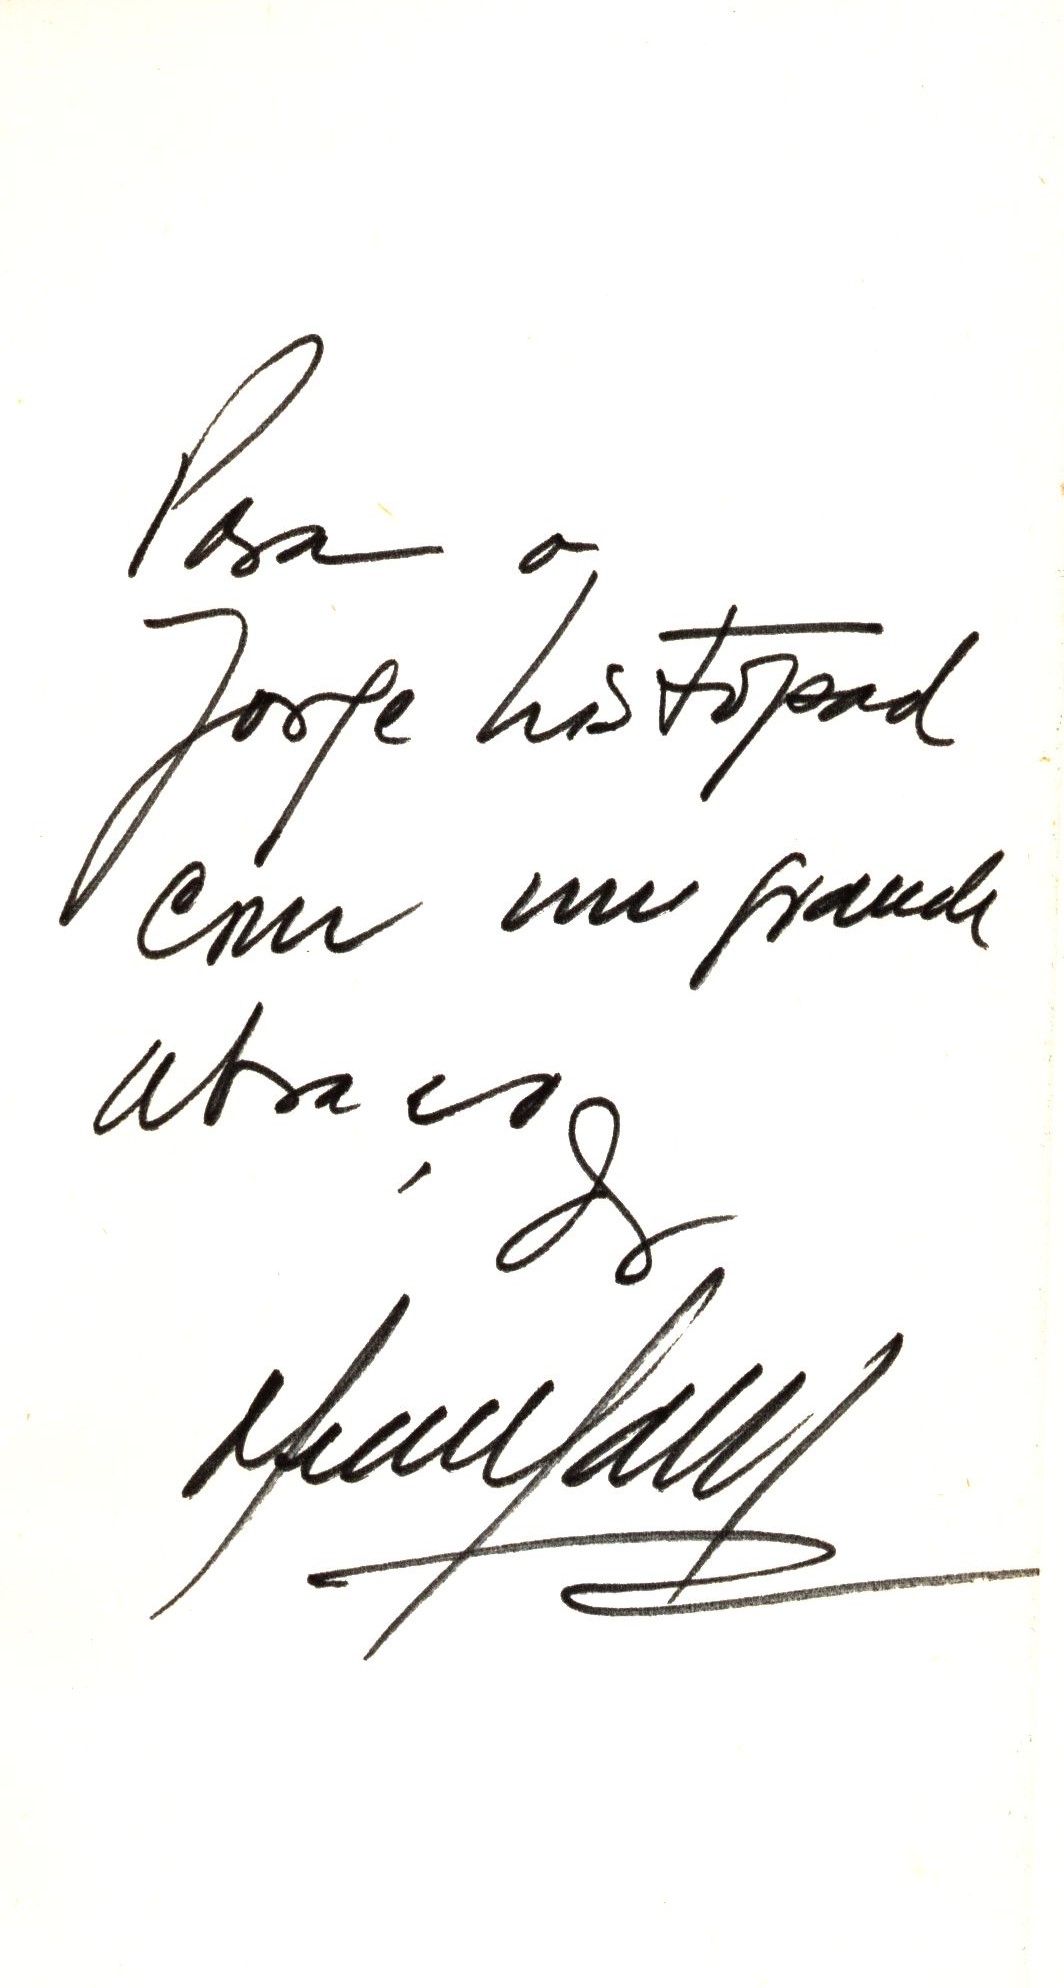 Para o
Jorge Listopad
com um grande
abraço
do